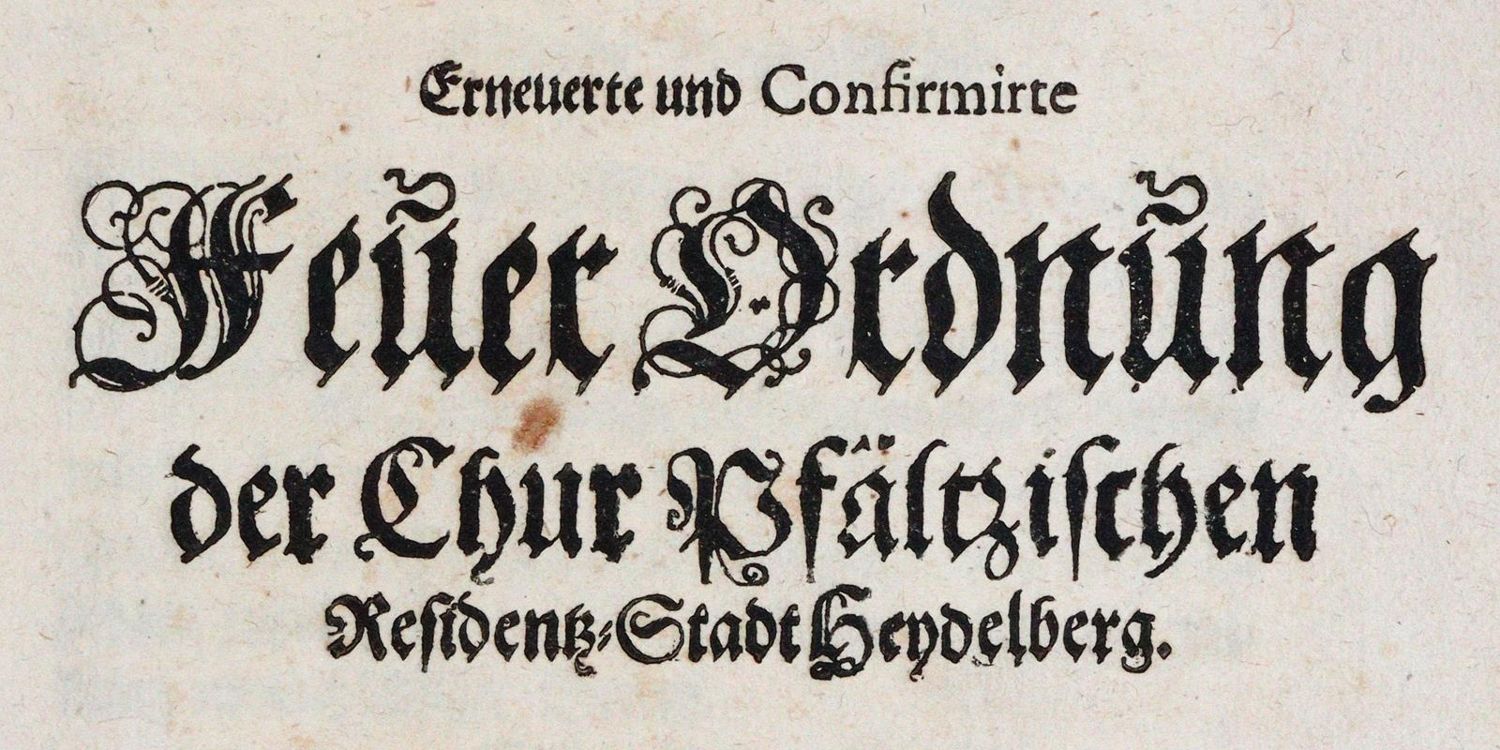 Erneuerte und Confirmirte
Feuer Ordnung
der Chur Pfältzischen
Residentz-Stadt Heydelberg.